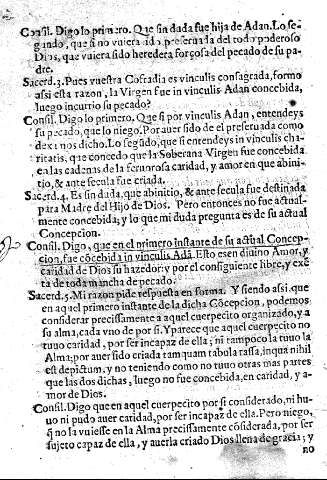 Consil. Digo lo primero. Que sin duda fue hija de Adan. Lo se-
gundo, que si no vuiera sido preseruada del todo poderoso
Dios, que vuiera sido heredera forçosa del pecado de su pa-
dre.
Sacerd. 3. Pues vuestra Cofradia es vinculis consagrada, formo
assi esta razon, la Virgen fue in vinculis Adan concebida,
luego incurrio su pecado?
Consil. Digo lo primero, Que si por vinculis Adan, entendeys
su pecado, que lo niego. Por auer sido de el preseruada como
dexamos dicho. Lo segũdo, que si entendeys in vinculis cha-
ritatis, que concedo que la Soberana Virgen fue concebida
en las cadenas de la feruorosa caridad, y amor en que abini-
tio, & ante secula fue criada.
Sacerd. 4. Es sin duda, que abinitio, & ante secula fue destinada
para Madre del Hijo de Dios. Pero entonces no fue actual-
mente concebida; y lo que mi duda pregunta es de su actual
Concepcion.
Consil. Digo, que en el primero instante de su actual Concep-
cion, fue cõcebida in vinculis Adã. Esto es en diuino Amor, y
caridad de Dios su hazedor: y por el consiguiente libre, y exẽ
ta de toda mancha de pecado.
Sacerd. 5. Mi razon pide respuesta en forma. Y siendo assi que
en aquel primero instante de la dicha Cõcepcion, podemos
considerar precissamente a aquel cuerpecito organizado, y a
su alma, cada vno de por si. Y parece que aquel cuerpecito no
tuuo caridad, por ser incapaz de ella; ni tampoco la tuuo la
Alma; por auer sido criada tamquam tabula rassa, in qua nihil
est depictum, y no teniendo como no tuuo otras mas partes
que las dos dichas, luego no fue concebida, en caridad, y a-
mor de Dios.
Consil. Digo que en aquel cuerpecito por si considerado, ni hu-
uo ni pudo auer caridad, por ser incapaz de ella. Pero niego,
q̃ no la vuiesse en la Alma precissamente cõsiderada, por ser
sujeto capaz de ella, y auerla criado Dios llena de gracia; y
no